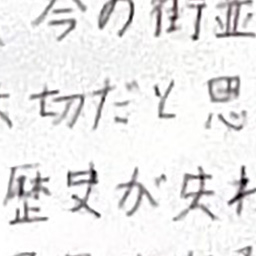 今の街並
切だと思
歴史が失わ